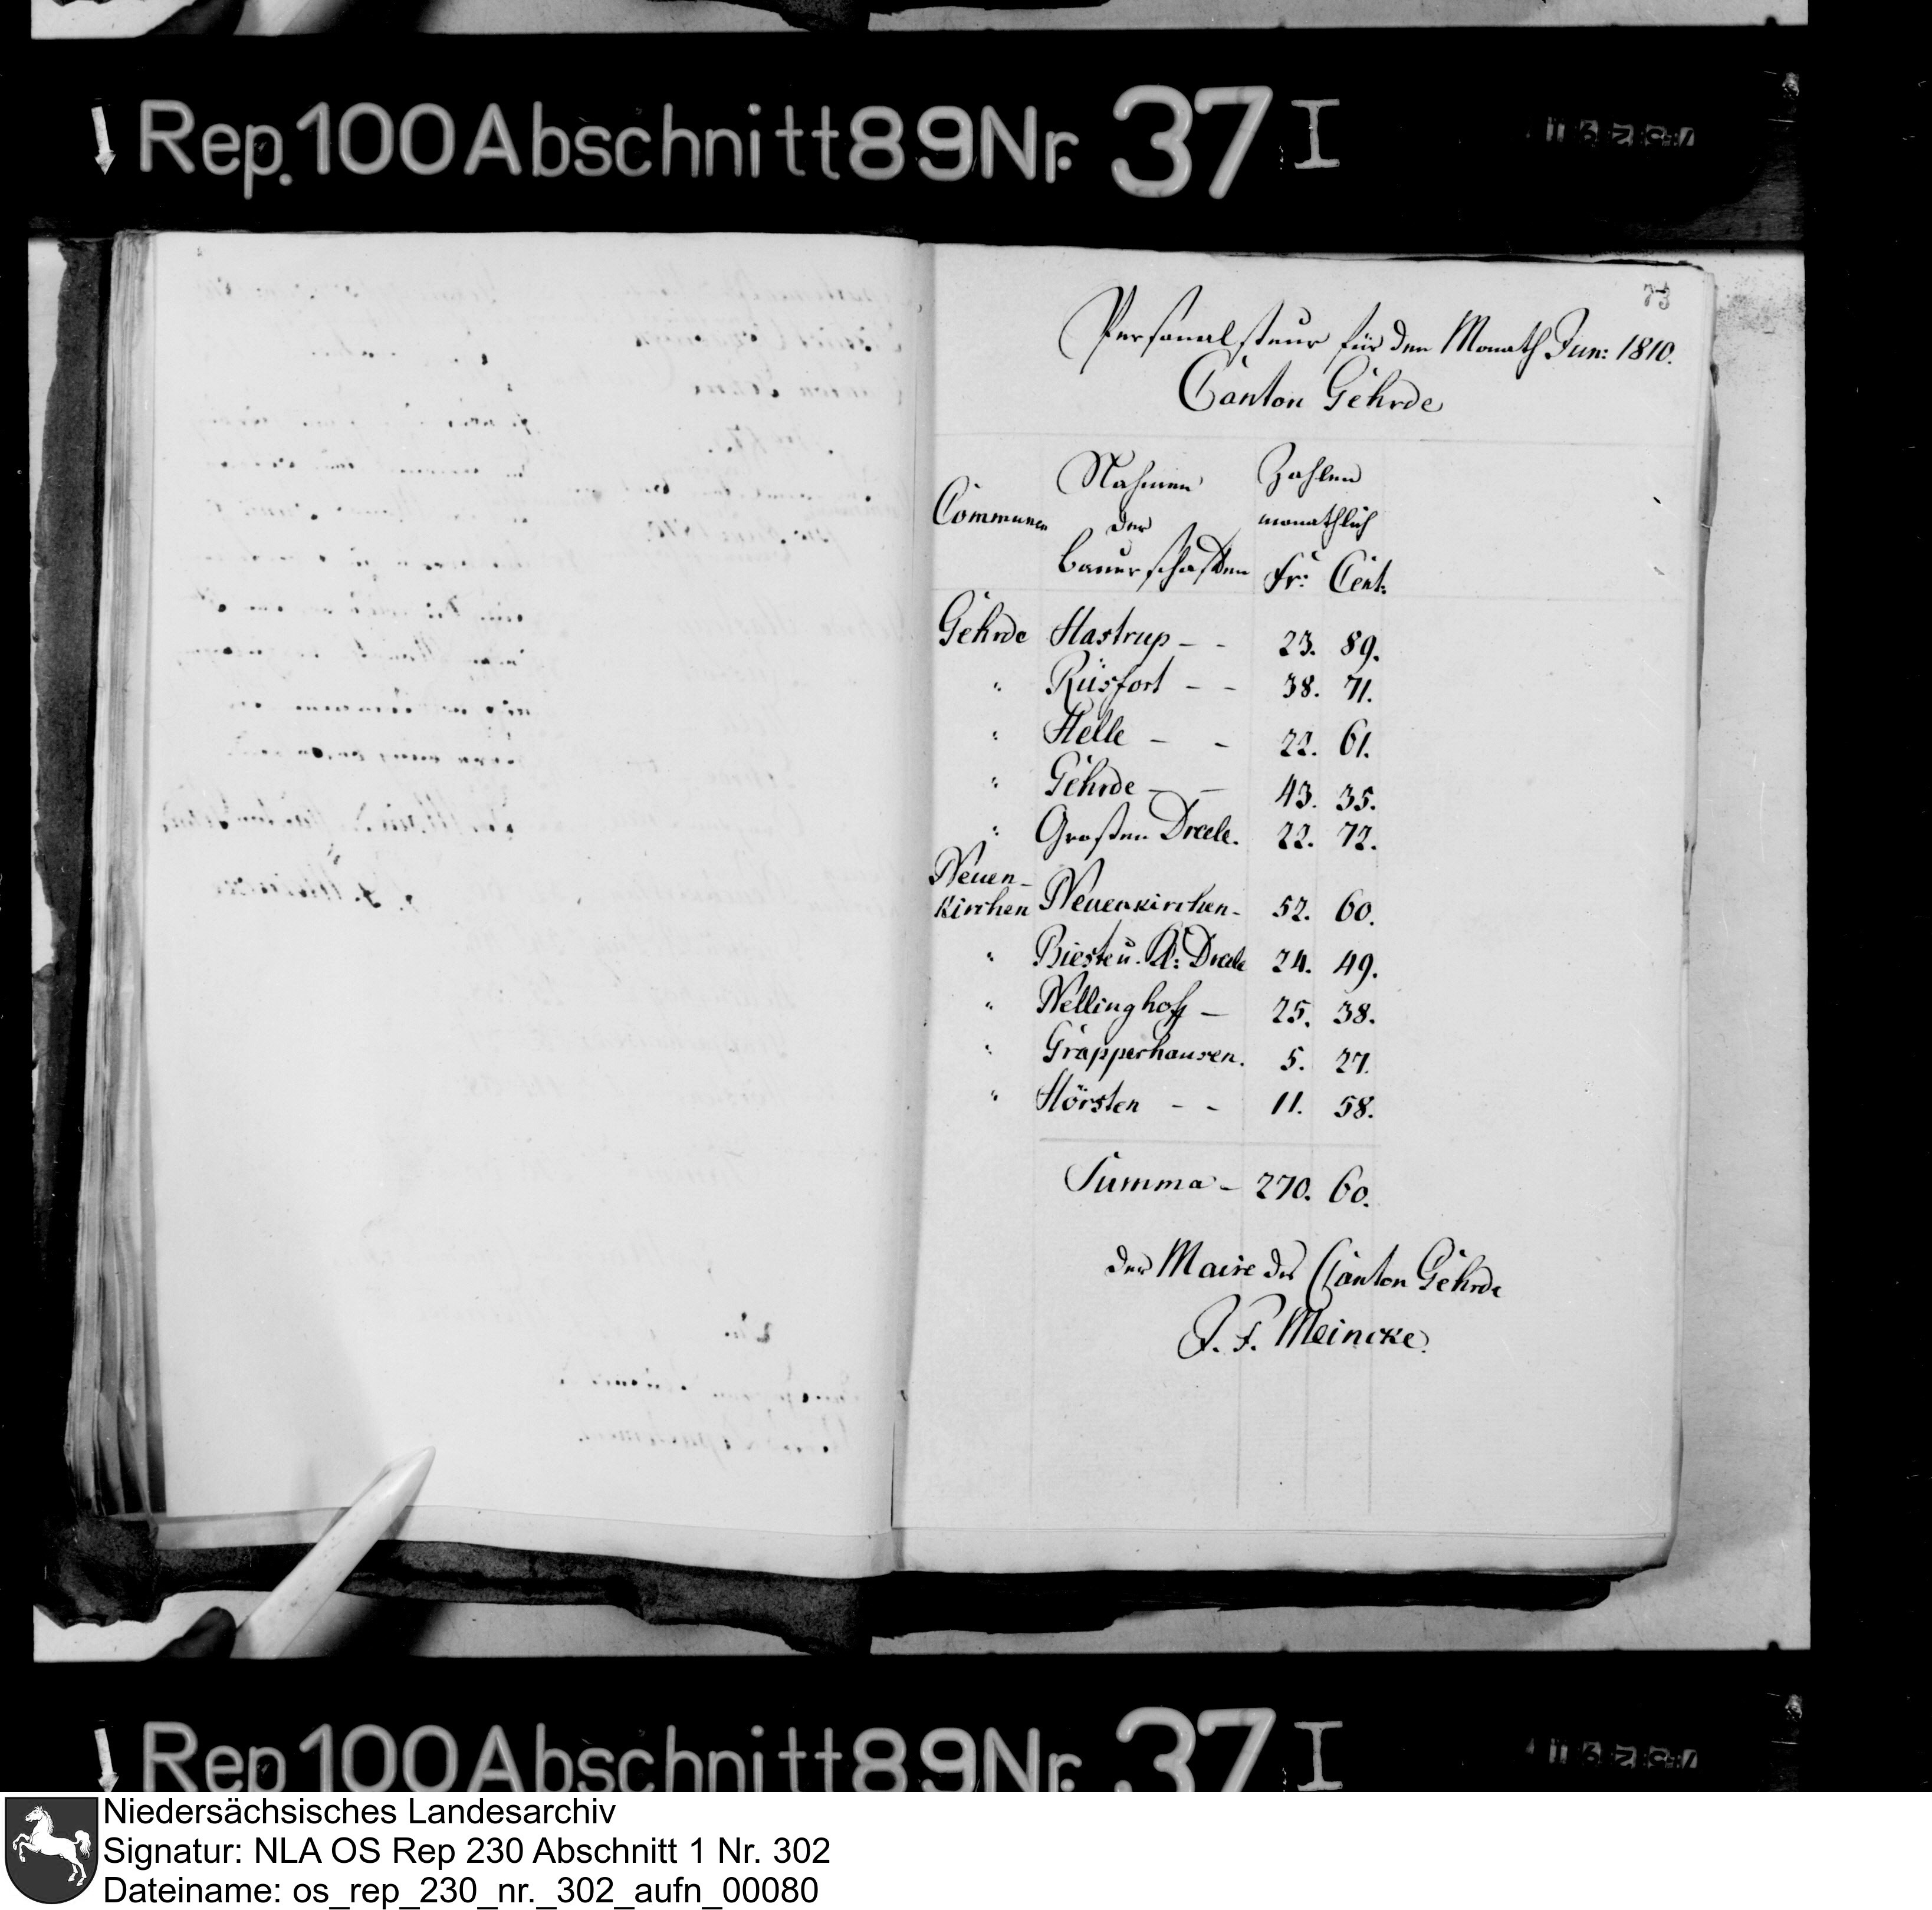 Rep. 100 Abschnitt 89 Nr. 37 I
73
Personalsteur für den Monath Jun: 1810.
Canton Gehrde
Communen Nahmen der Bauerschaften Zahlen monathlich
Fr: Cent:
Gehrde Hastrup - - 23. 89.
" Rüsfort - - 38. 71.
" Helle - - 22. 61.
" Gehrde - - 43. 35.
" Großen Drele. 22. 72.
Neuen-
kirchen Neuenkirchen - 52. 60.
" Bieste u. Kl: Drele 24. 49.
" Nellinghoff - 25. 38.
" Grapperhausen. 5. 27.
" Hörsten - - 11. 58.
Summa - 270. 60.
Der Maire des Canton Gehrde
J. F. Meincke.
Rep 100 Abschnitt 89 Nr. 37 I
Niedersächsisches Landesarchiv
Signatur: NLA OS Rep 230 Abschnitt 1 Nr. 302
Dateiname: os_rep_230_nr._302_aufn_00080